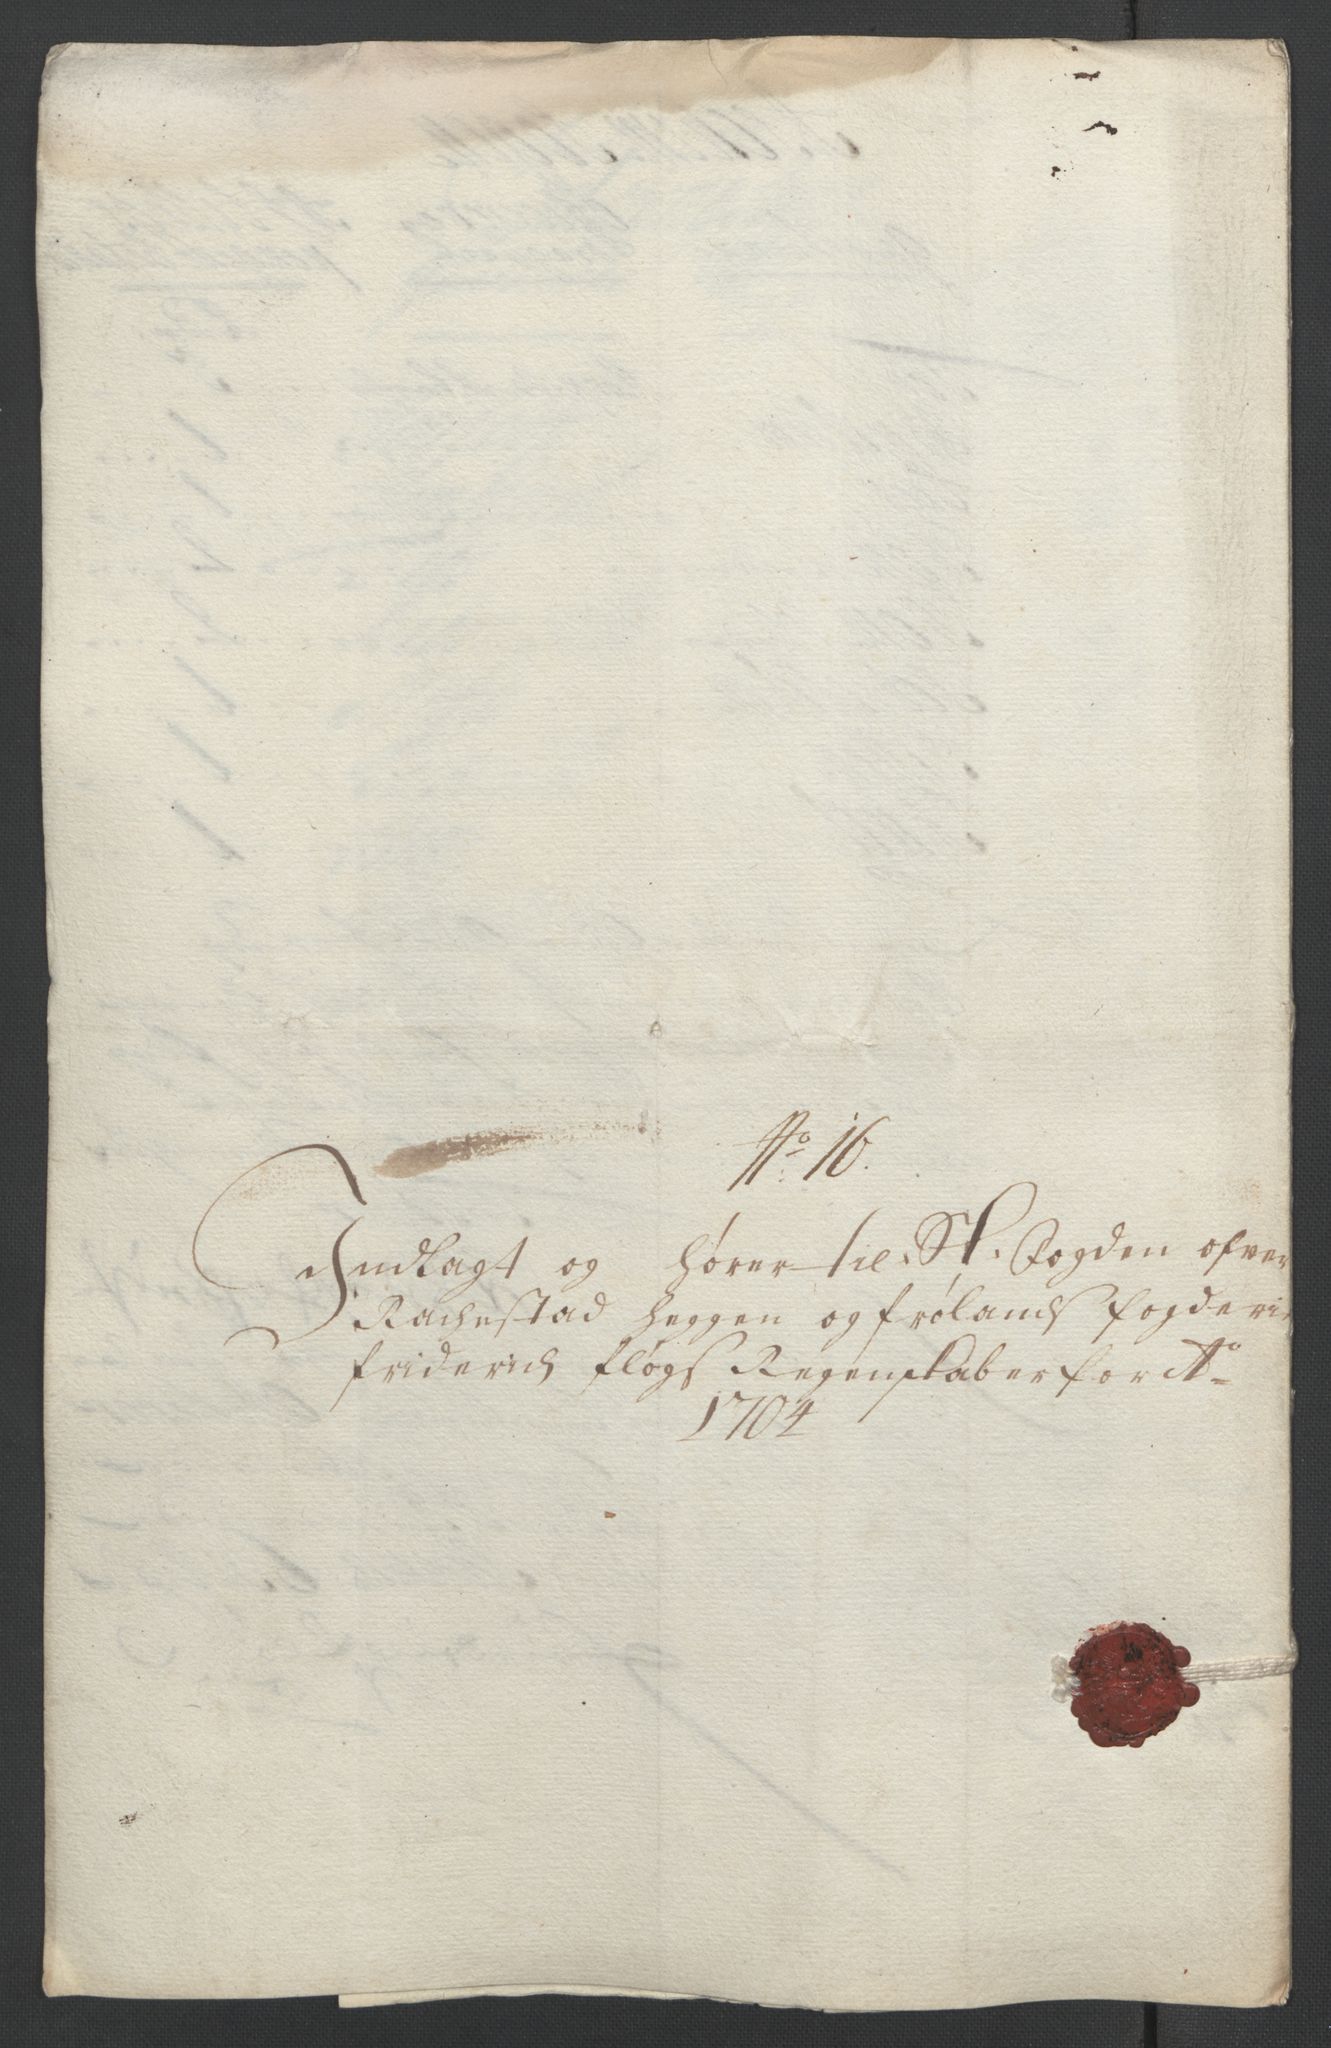 No 16.
Indlagt og hører til Sl. Fogden ofver
Rachestad heggen og frølands fogderi
friderich fløgs Regenskaber for Ao
1704